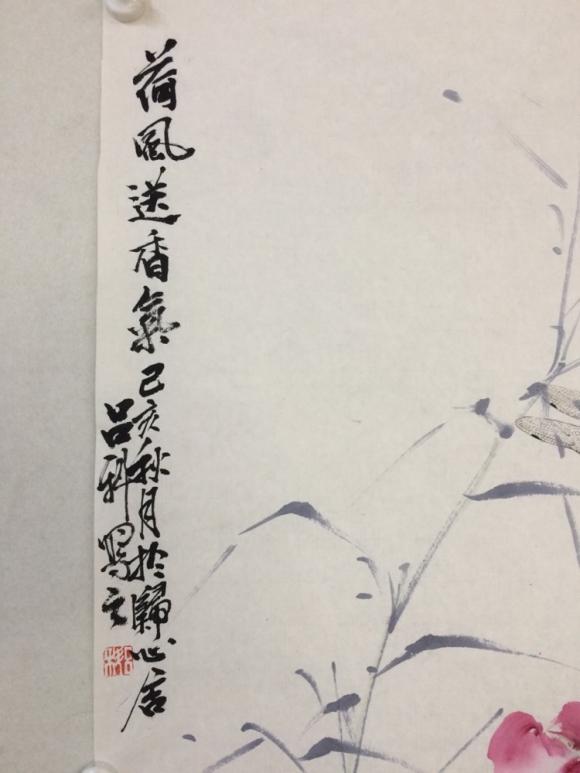 荷風送香氣己亥秋月於歸心居
呂科寫之